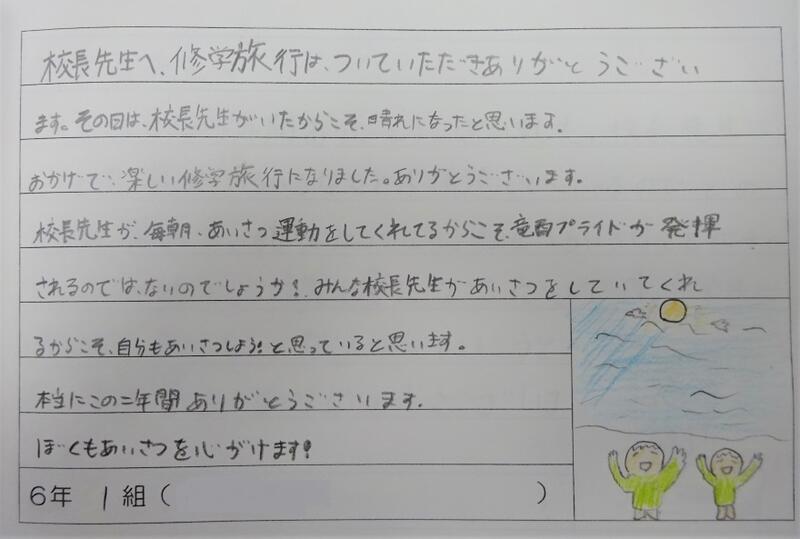 校長先生へ、修学旅行は、ついていただきありがとうござい
ます。その日は、校長先生がいたからこそ、晴れになったと思います。
おかげで、楽しい修学旅行になりました。ありがとうございます。
校長先生が、毎朝、あいさつ運動をしてくれてるからこそ、竜西プライドが発揮
されるのでは、ないのでしょうか?みんな校長先生があいさつをしていてくれ
るからこそ、自分もあいさつしよう!と思っていると思います。
本当にこの二年間ありがとうございます。
ぼくもあいさつを心がけます!
6年 1組( )